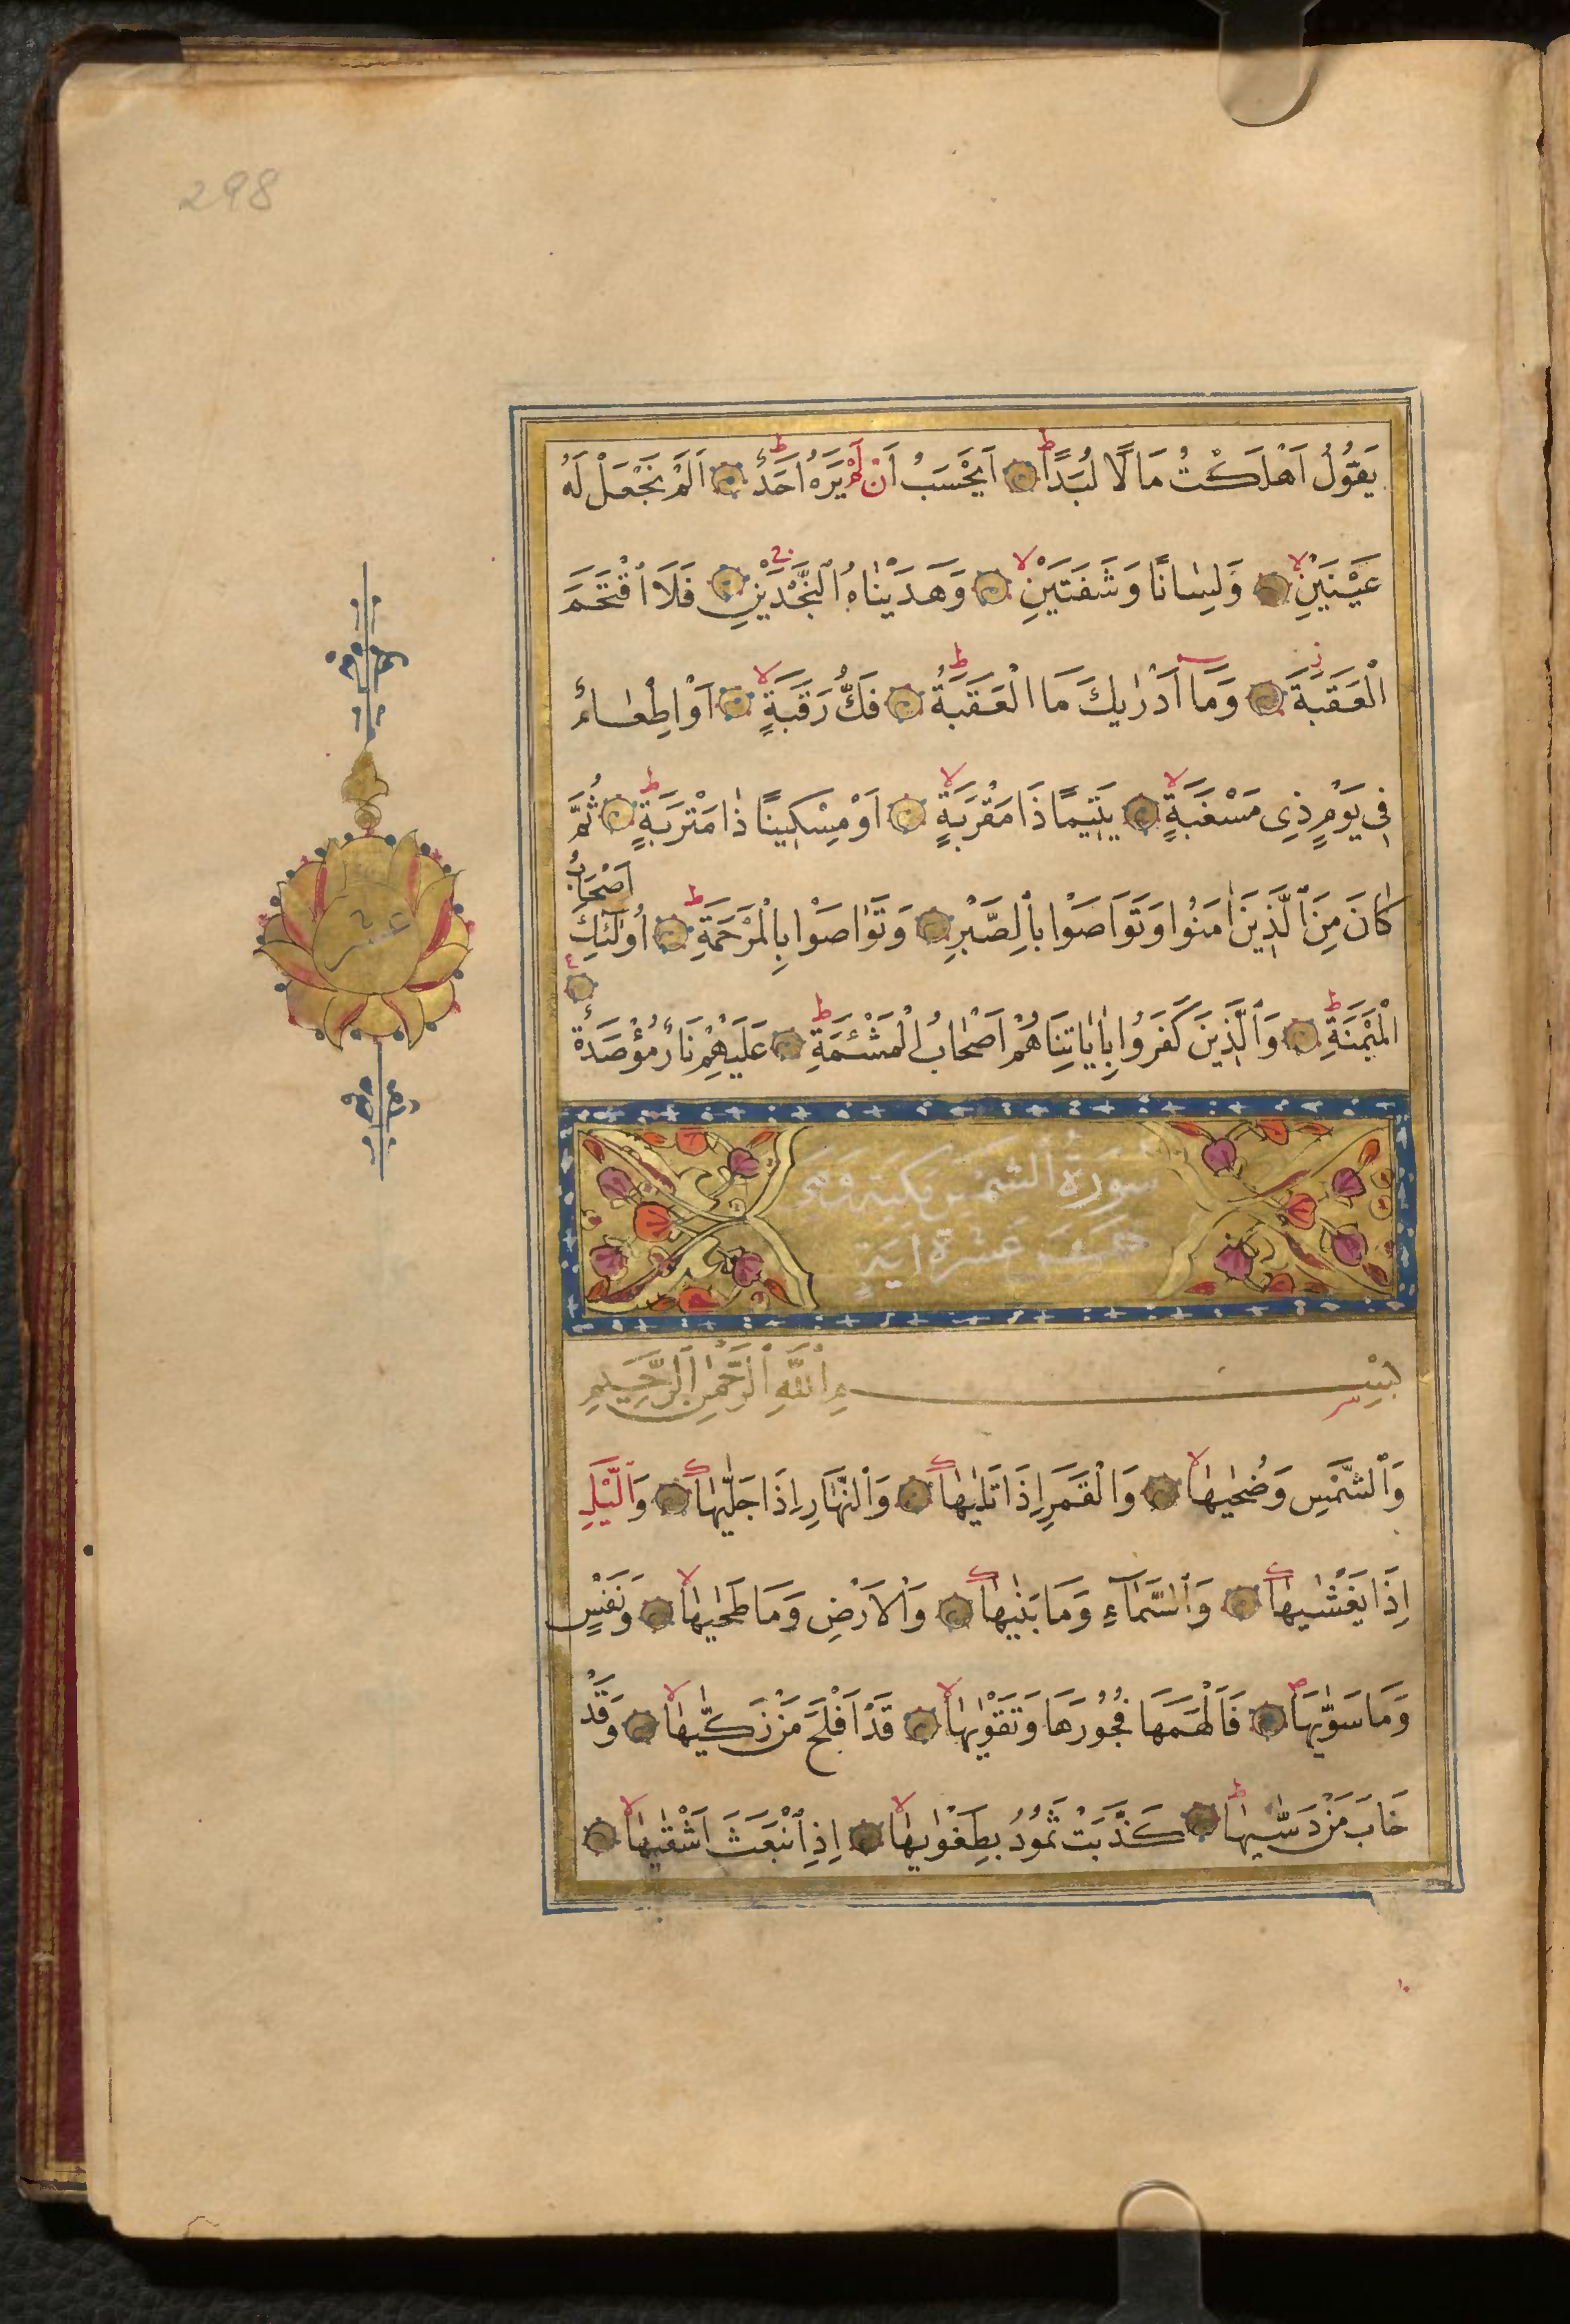 298
يَقُولُ اَهْلَكْتُ مَالًا لُبَدًا اَيَحْسَبُ اَنْ لَمْ يَرَهُ اَحَدٌ اَلَمْ نَجْعَلْ لَهُ
عَيْنَيْنِ وَلِسَانًا وَشَفَتَيْنِ وَهَدَيْنَاهُ ٱلنَّجْدَيْنِ فَلَا ٱقْتَحَمَ
الْعَقَبَةَ وَمَا اَدْرٰيكَ مَا الْعَقَبَةُ فَكُّ رَقَبَةٍ اَوْ اِطْعَامٌ
فِى يَوْمٍ ذِى مَسْغَبَةٍ يَتِيمًا ذَا مَقْرَبَةٍ اَوْ مِسْكِينًا ذَا مَتْرَبَةٍ ثُمَّ
كَانَ مِنَ ٱلَّذِينَ اٰمَنُوا وَتَوَاصَوْا بِٱلصَّبْرِ وَتَوَاصَوْا بِالْمَرْحَمَةِ اُولٰٓئِكَ اَصْحَابُ
الْمَيْمَنَةِ وَٱلَّذِينَ كَفَرُوا بِاٰيَاتِنَا هُمْ اَصْحَابُ الْمَشْئَمَةِ عَلَيْهِمْ نَارٌ مُؤْصَدَةٌ
عشر
سُورَةُ ٱلشَّمْسِ مكية وهى
خمس عشرة اية
بِسْمِ ٱللّٰهِ ٱلرَّحْمٰنِ ٱلرَّحِيمِ
وَٱلشَّمْسِ وَضُحٰيهَا وَالْقَمَرِ اِذَا تَلٰيهَا وَٱلنَّهَارِ اِذَا جَلّٰيهَا وَٱلَّيْلِ
اِذَا يَغْشٰيهَا وَٱلسَّمَآءِ وَمَا بَنٰيهَا وَالْاَرْضِ وَمَا طَحٰيهَا وَنَفْسٍ
وَمَا سَوّٰيهَا فَاَلْهَمَهَا فُجُورَهَا وَتَقْوٰيهَا قَدْ اَفْلَحَ مَنْ زَكّٰيهَا وَقَدْ
خَابَ مَنْ دَسّٰيهَا كَذَّبَتْ ثَمُودُ بِطَغْوٰيهَا اِذِ ٱنْبَعَثَ اَشْقٰيهَا